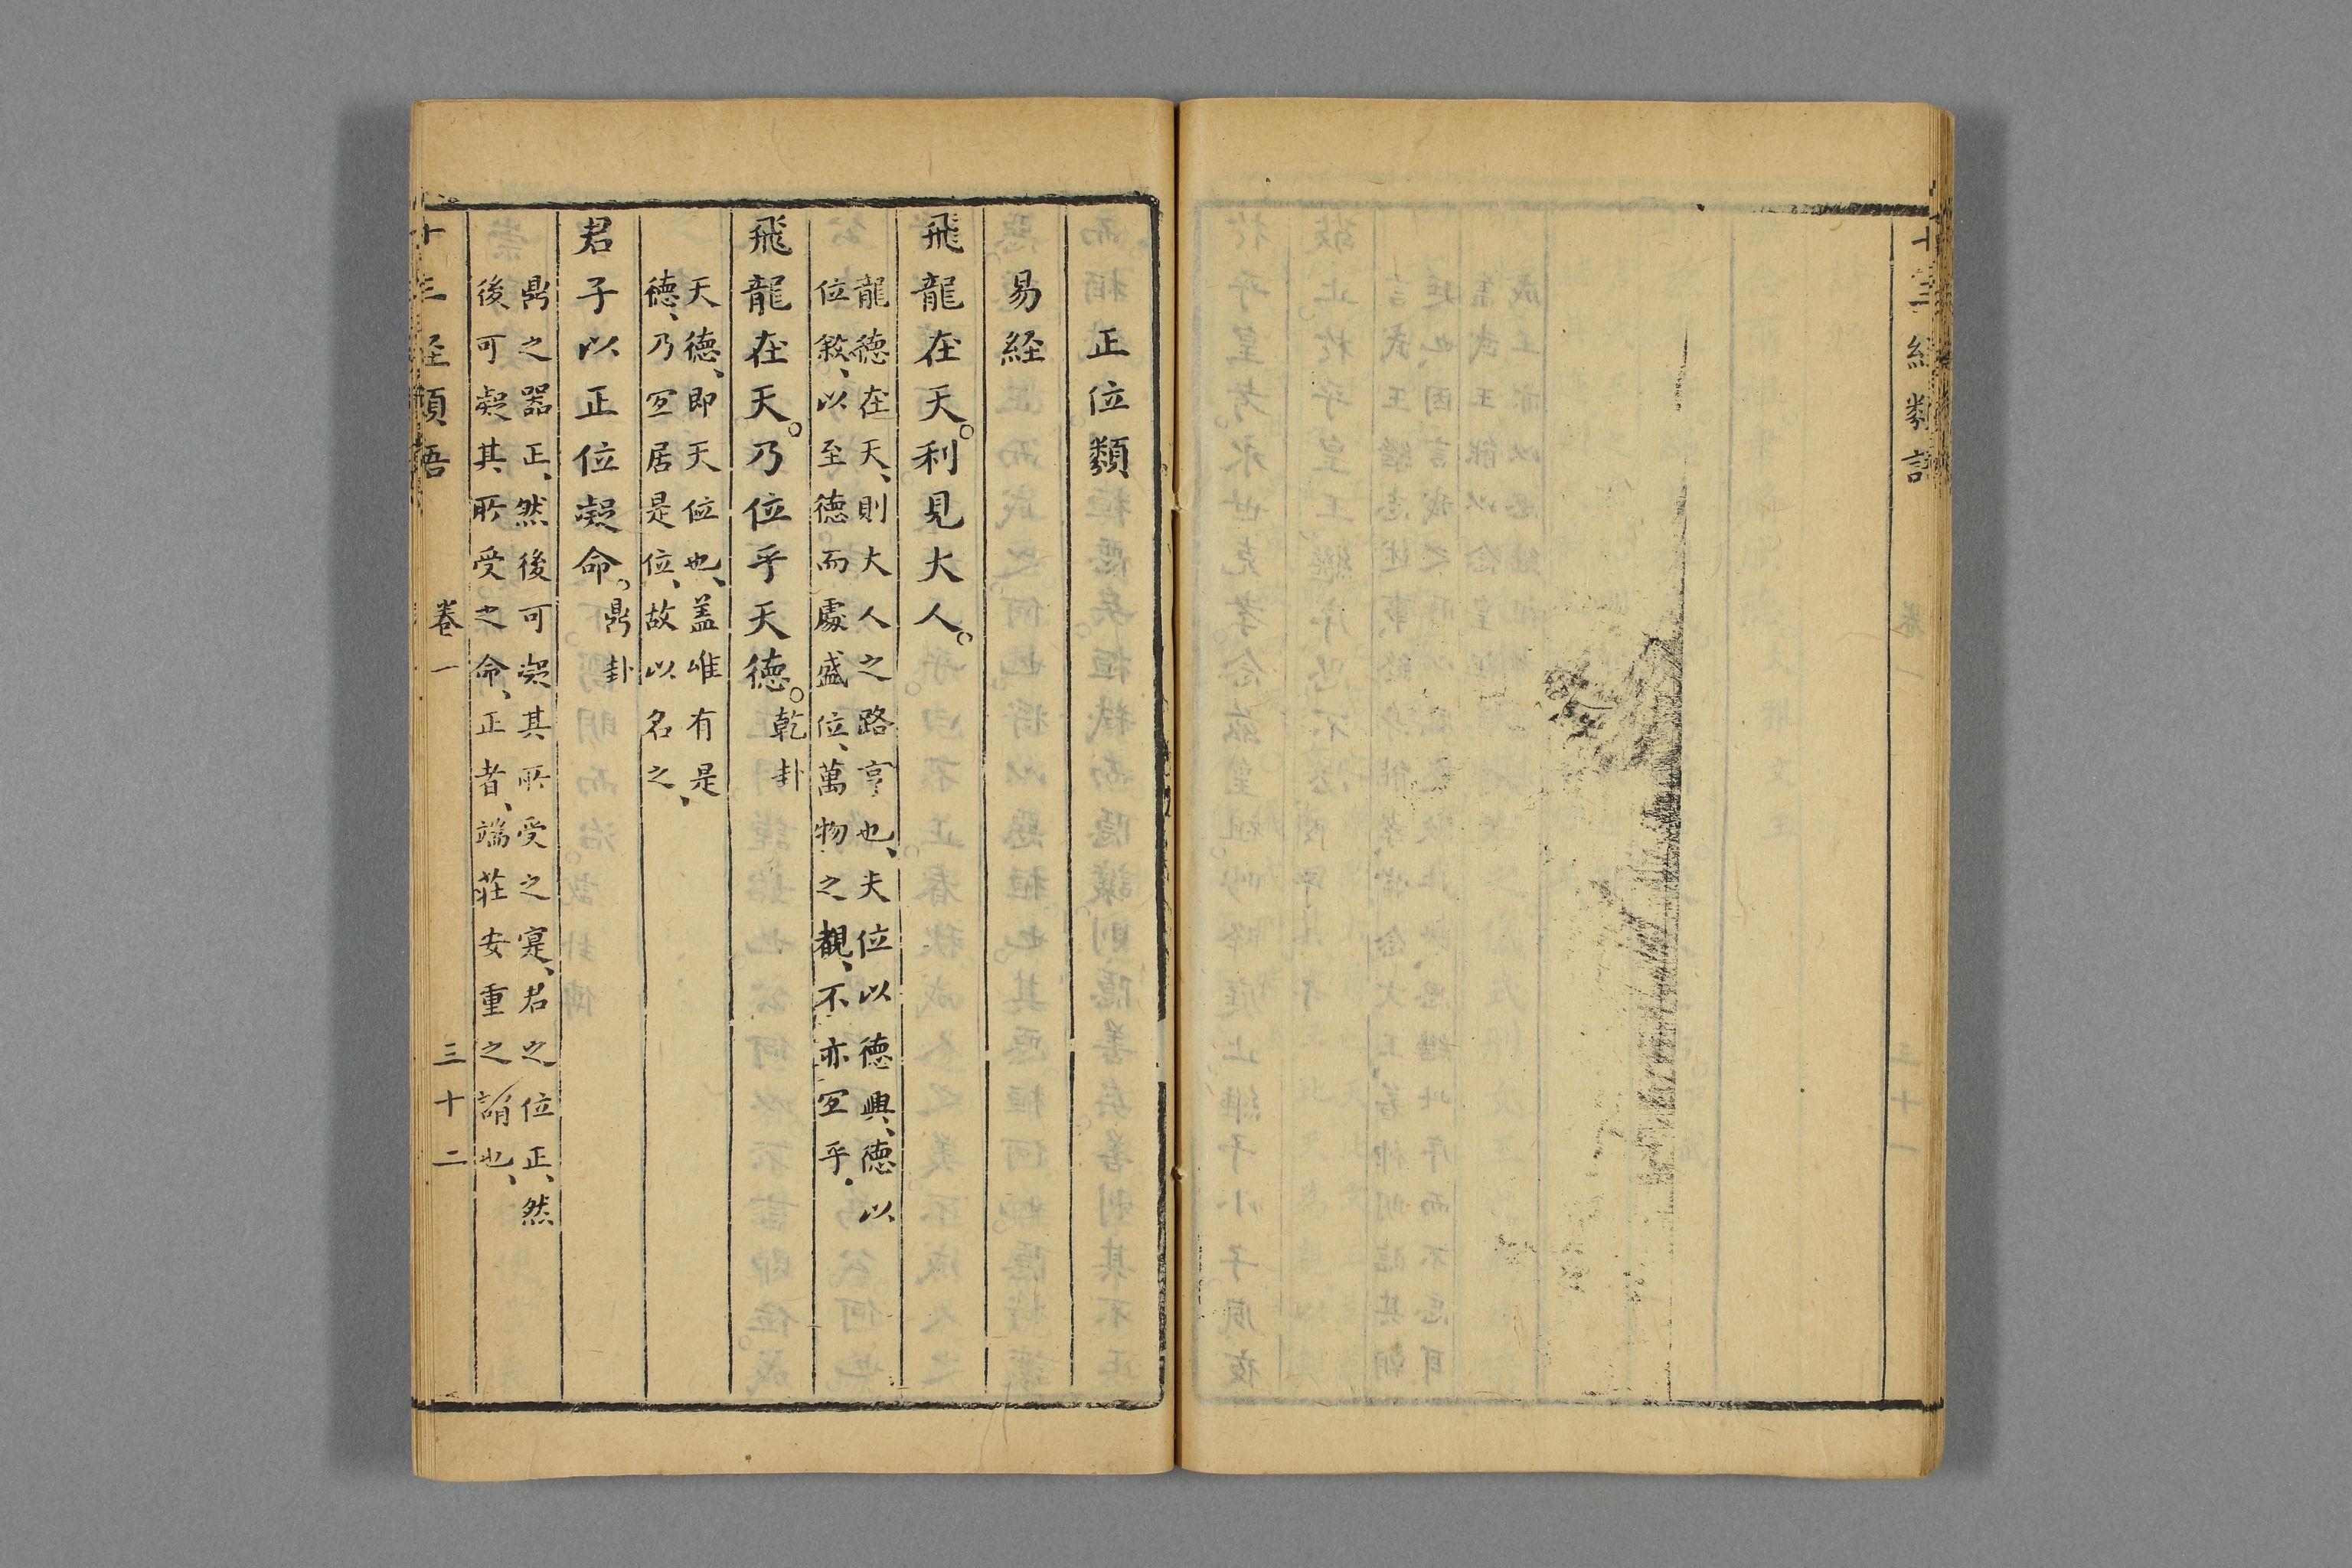 十三經類語
正位類
易経
飛龍在天。利見大人。
龍德在天、則大人之路亨也、夫位以德興、德以
位敘、以至德而處盛位、萬物之覩、不亦冝乎、
飛龍在天。乃位乎天德。乾卦
天德、即天位也、盖唯有是
德、乃冝居是位、故以名之、
君子以正位凝命。鼎卦
鼎之器正、然後可凝其所受之寔、君之位正、然
後可凝其所受之命、正者、端莊安重之謂也、
十三経類語 卷一 三十二